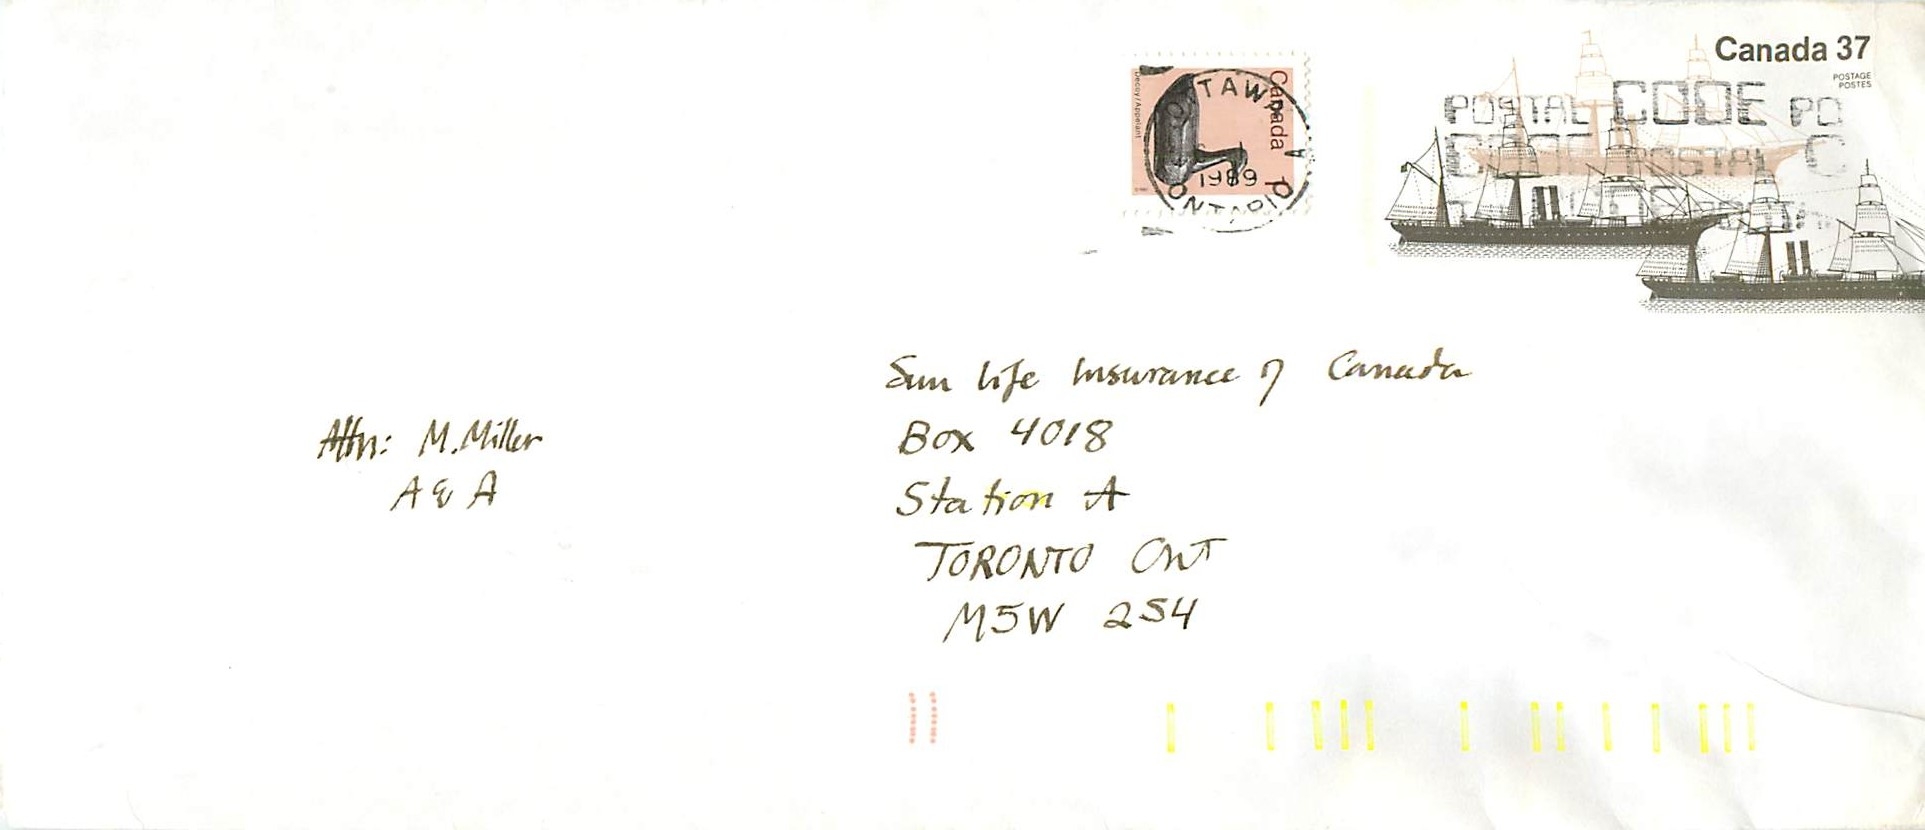 Canada 37
POSTAGE
POSTES
Canada
Decoy / Appelant
OTTAWA
1989
ONTARIO
POSTAL CODE PO
CODE POSTAL C
Sun Life Insurance of Canada
Box 4018
Station A
TORONTO ONT
M5W 2S4
Attn: M. Miller
A & A